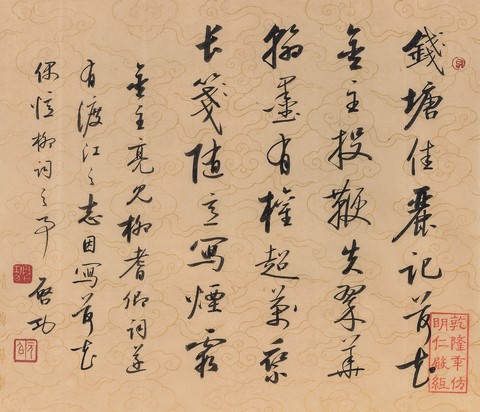 錢塘佳麗記荷花
金主投鞭失翠華
翰墨有權超萬乘
長箋隨意寫煙霞
金主亮見柳耆卿詞遂
有渡江之志因寫荷花
偶憶柳詞之事
啟功
乾隆年仿
明仁殿紙